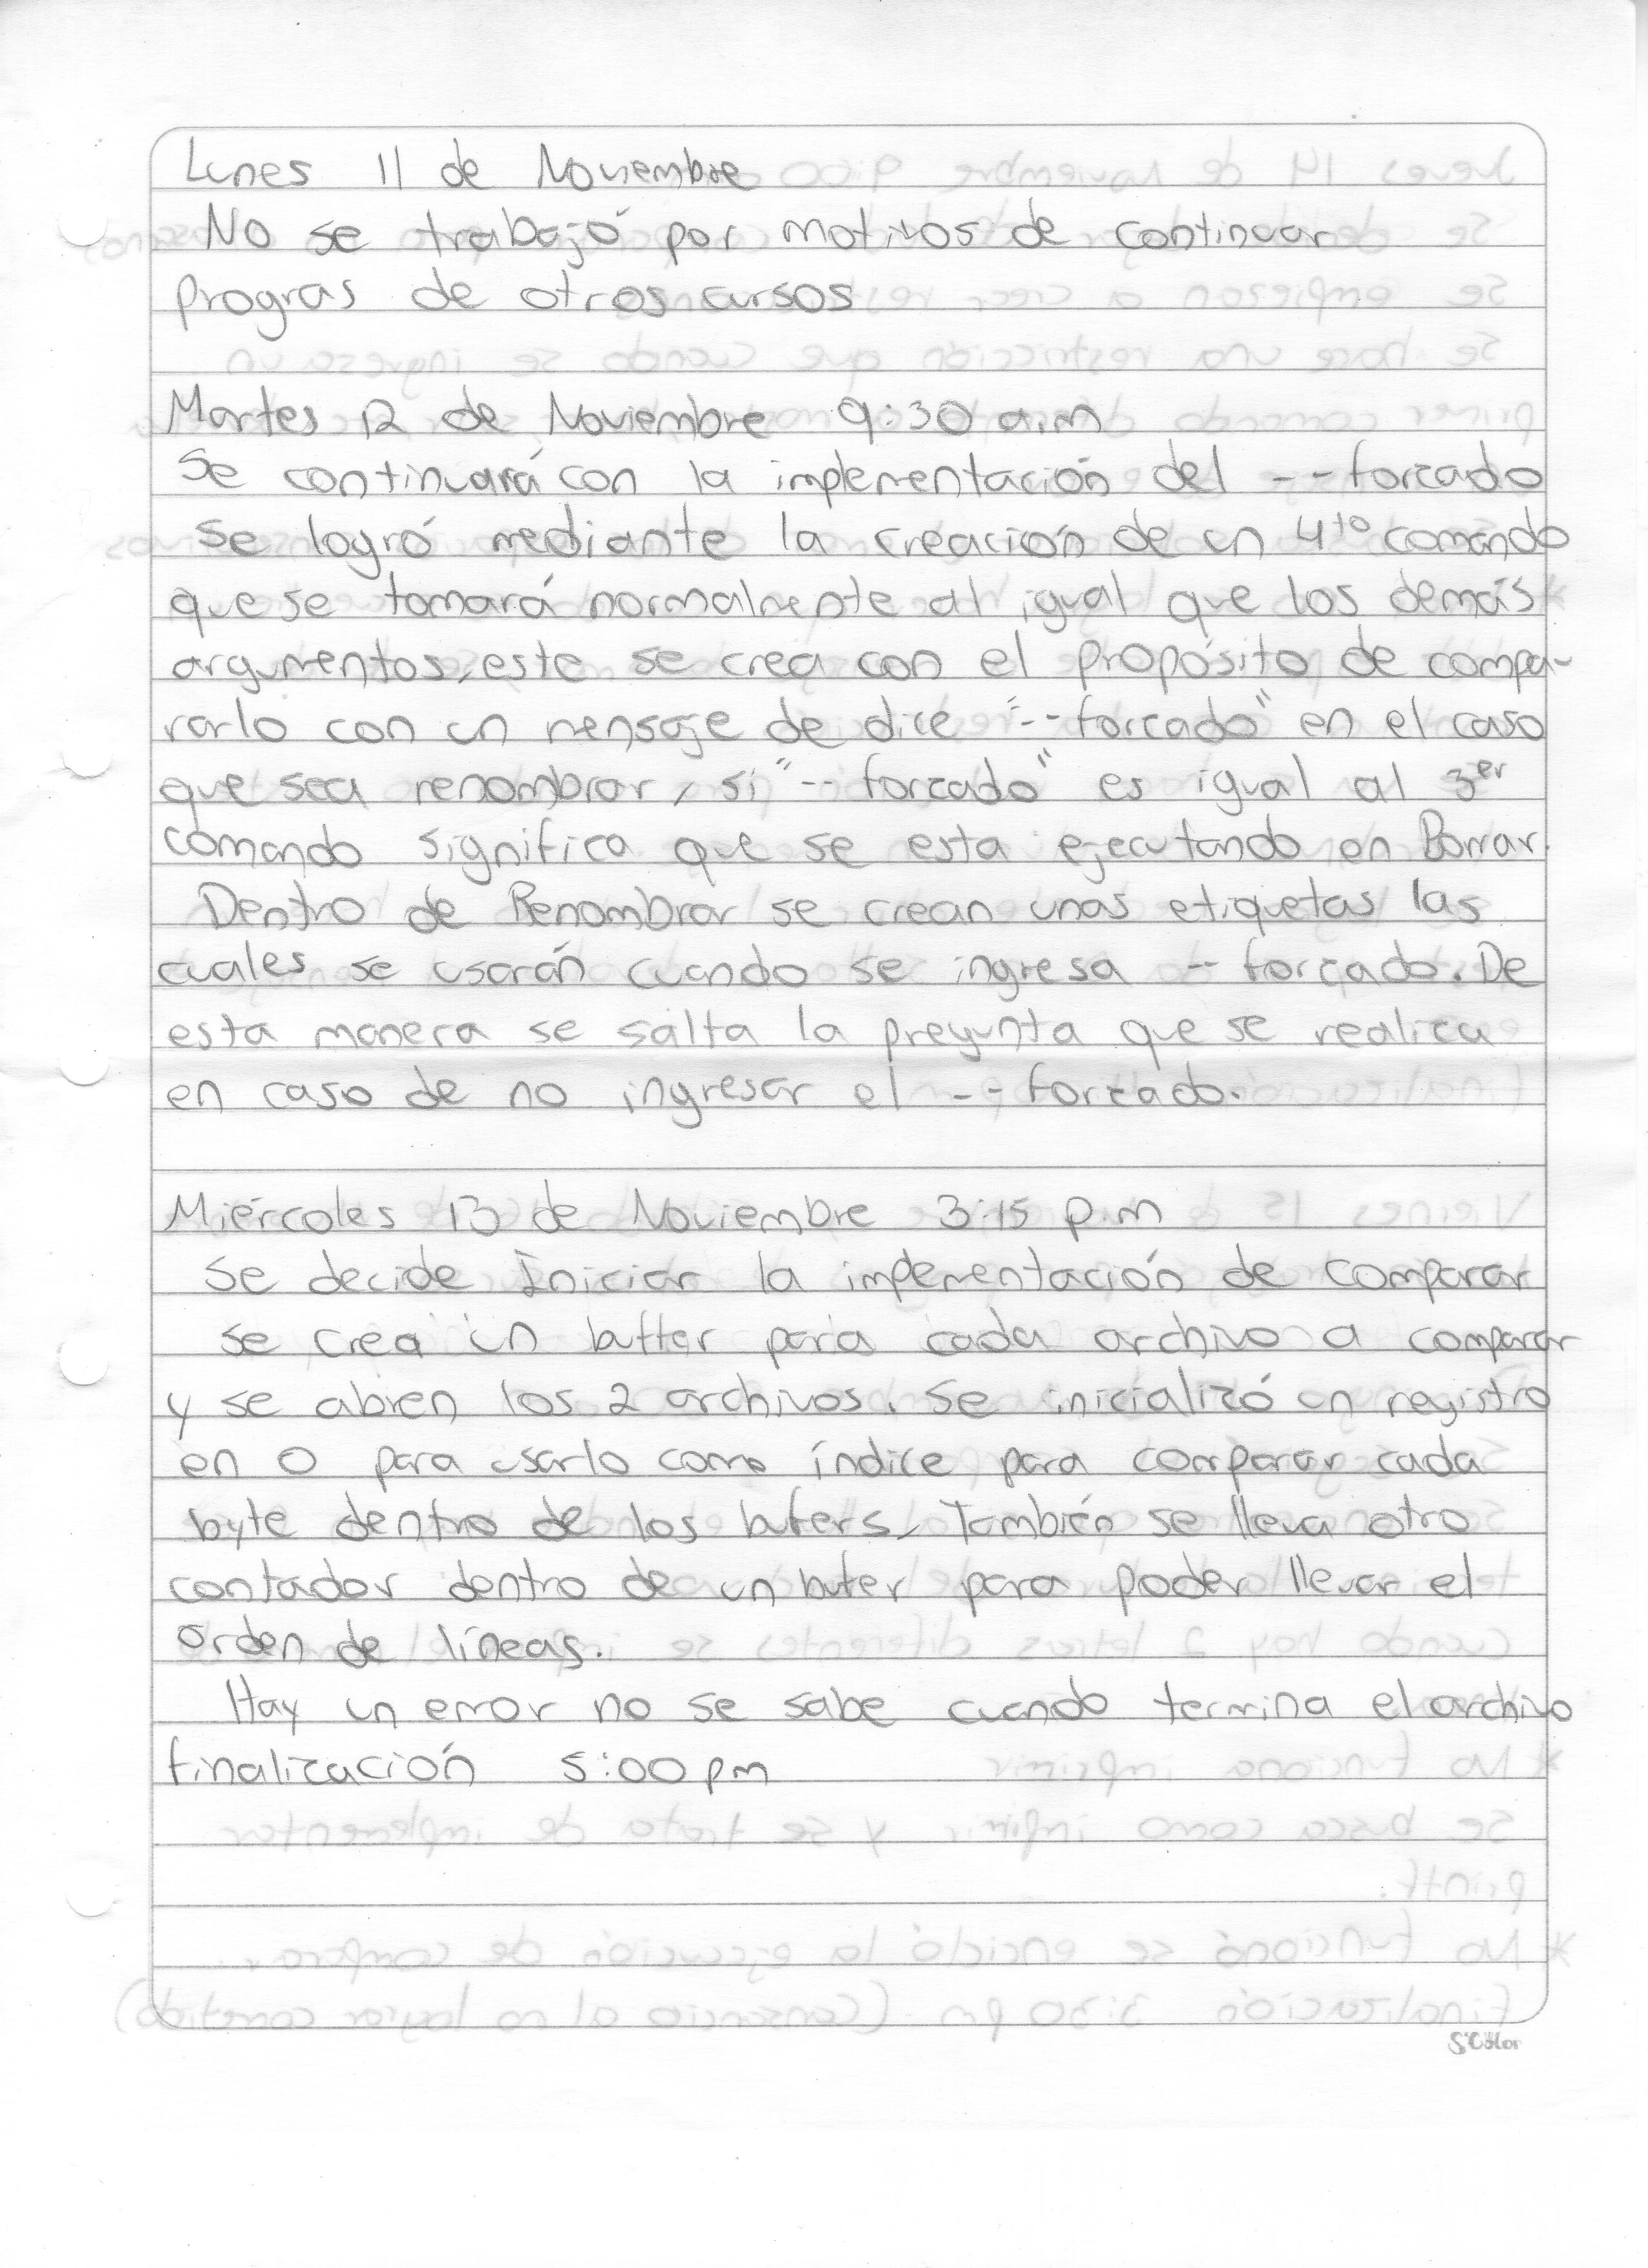 Lunes 11 de Noviembre
No se trabajó por motivos de continuar
Progras de otros cursos
Martes 12 de Noviembre 9:30 a.m
Se continuará con la implementación del --forzado
Se logró mediante la creación de un 4to comando
que se tomará normalmente al igual que los demás
argumentos, este se crea con el propósito de compa-
rarlo con un mensaje de dice "--forzado" en el caso
que sea renombrar, si "--forzado" es igual al 3er
comando significa que se esta ejecutando en Borrar.
Dentro de Renombrar se crean unas etiquetas las
cuales se usarán cuando se ingresa --forzado. De
esta manera se salta la pregunta que se realiza
en caso de no ingresar el --forzado.
Miércoles 13 de Noviembre 3:15 p.m
Se decide Iniciar la impementación de comparar
Se crea un buffer para cada archivo a comparar
y se abren los 2 archivos. Se inicializó un registro
en 0 para usarlo como índice para comparar cada
byte dentro de los bufers, También se lleva otro
contador dentro de un bufer para poder llevar el
orden de líneas.
Hay un error no se sabe cuando termina el archivo
finalización 5:00 pm